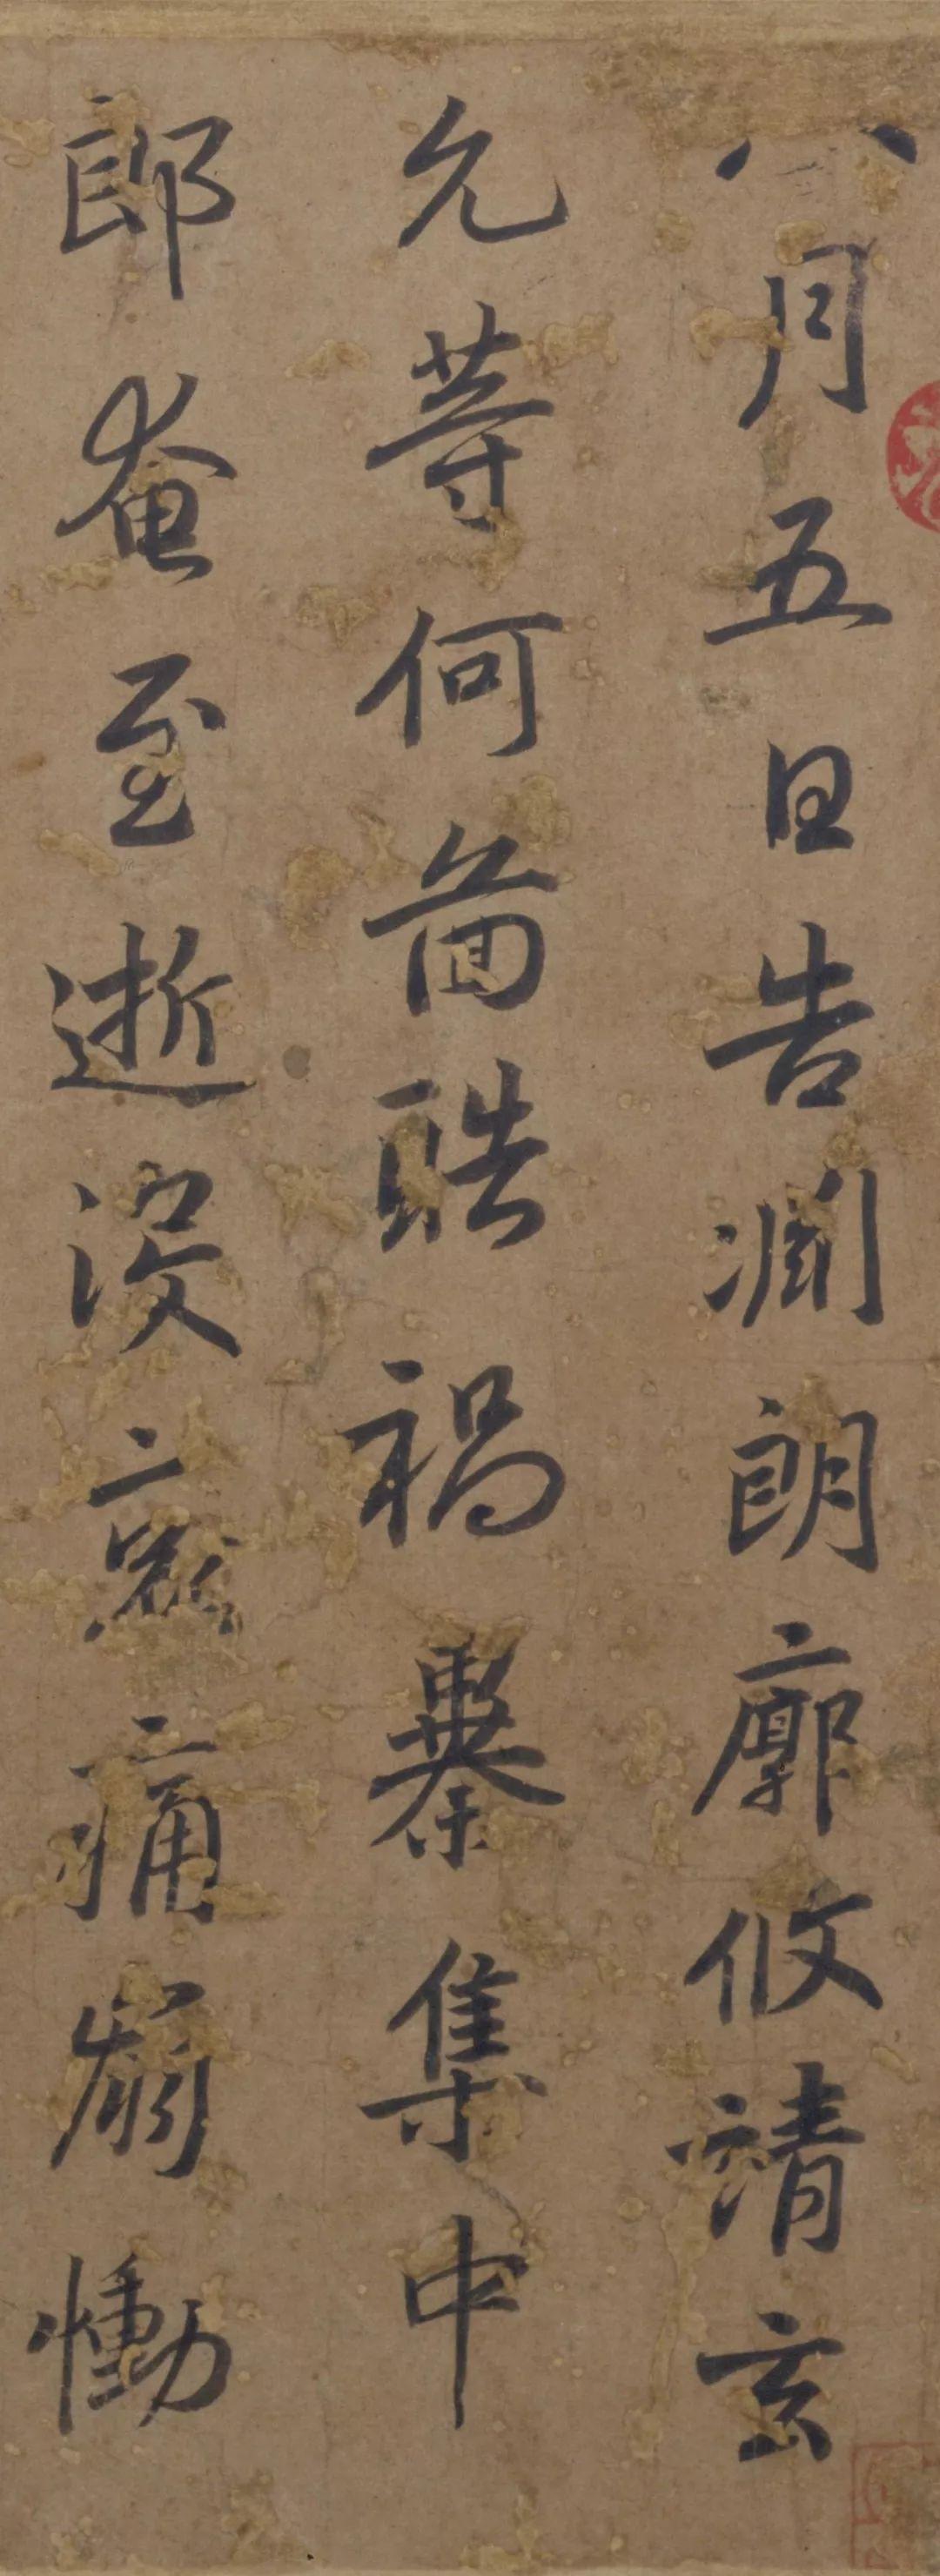 八月五日告淵朗廓攸靖玄
允等何圖酷禍暴集中
郎奄至逝沒哀痛崩慟